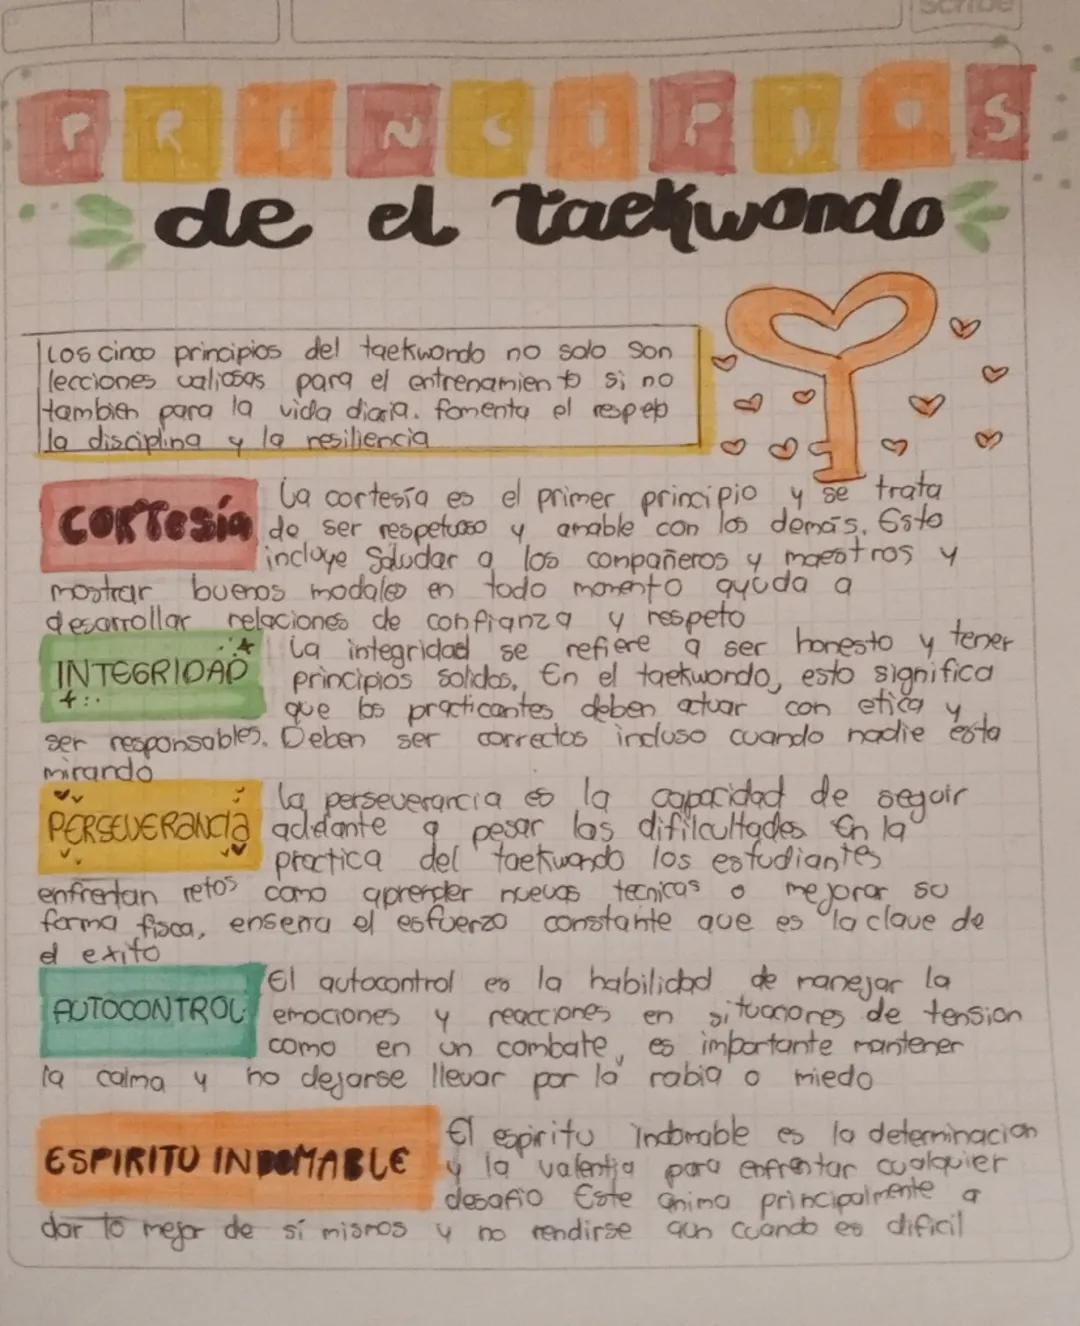 Scribe
PRINCIPIOS
de el taekwondo
Los cinco principios del taekwondo no solo son
lecciones valiosas para el entrenamiento si no
tambien para la vida diaria. fomenta el respeto
la disciplina y la resiliencia
CORTESÍA
La cortesía es el primer principio y se trata
de ser respetuoso y amable con los demás. Esto
incluye Saludar a los compañeros y maestros y
mostrar buenos modales en todo momento ayuda a
desarrollar relaciones de confianza y respeto
INTEGRIDAD
La integridad se refiere a ser honesto y tener
principios solidos. En el taekwondo, esto significa
que los practicantes deben actuar con etica y
ser responsables. Deben ser correctos incluso cuando nadie esta
mirando
PERSEVERANCIA
La perseverancia es la capacidad de seguir
adelante a pesar las difilcultades En la
practica del taekwondo los estudiantes
enfrentan retos como aprender nuevas tecnicas o mejorar su
forma fisca, enseña el esfuerzo constante que es la clave de
el exito
AUTOCONTROL
El autocontrol es la habilidad de manejar la
emociones y reacciones en situaciones de tension
como en un combate, es importante mantener
la calma y no dejarse llevar por la rabia o miedo
ESPIRITU INDOMABLE
El espiritu indomable es la determinacion
y la valentia para enfrentar cualquier
desafio Este anima principalmente a
dar lo mejor de sí mismos y no rendirse aun cuando es dificil